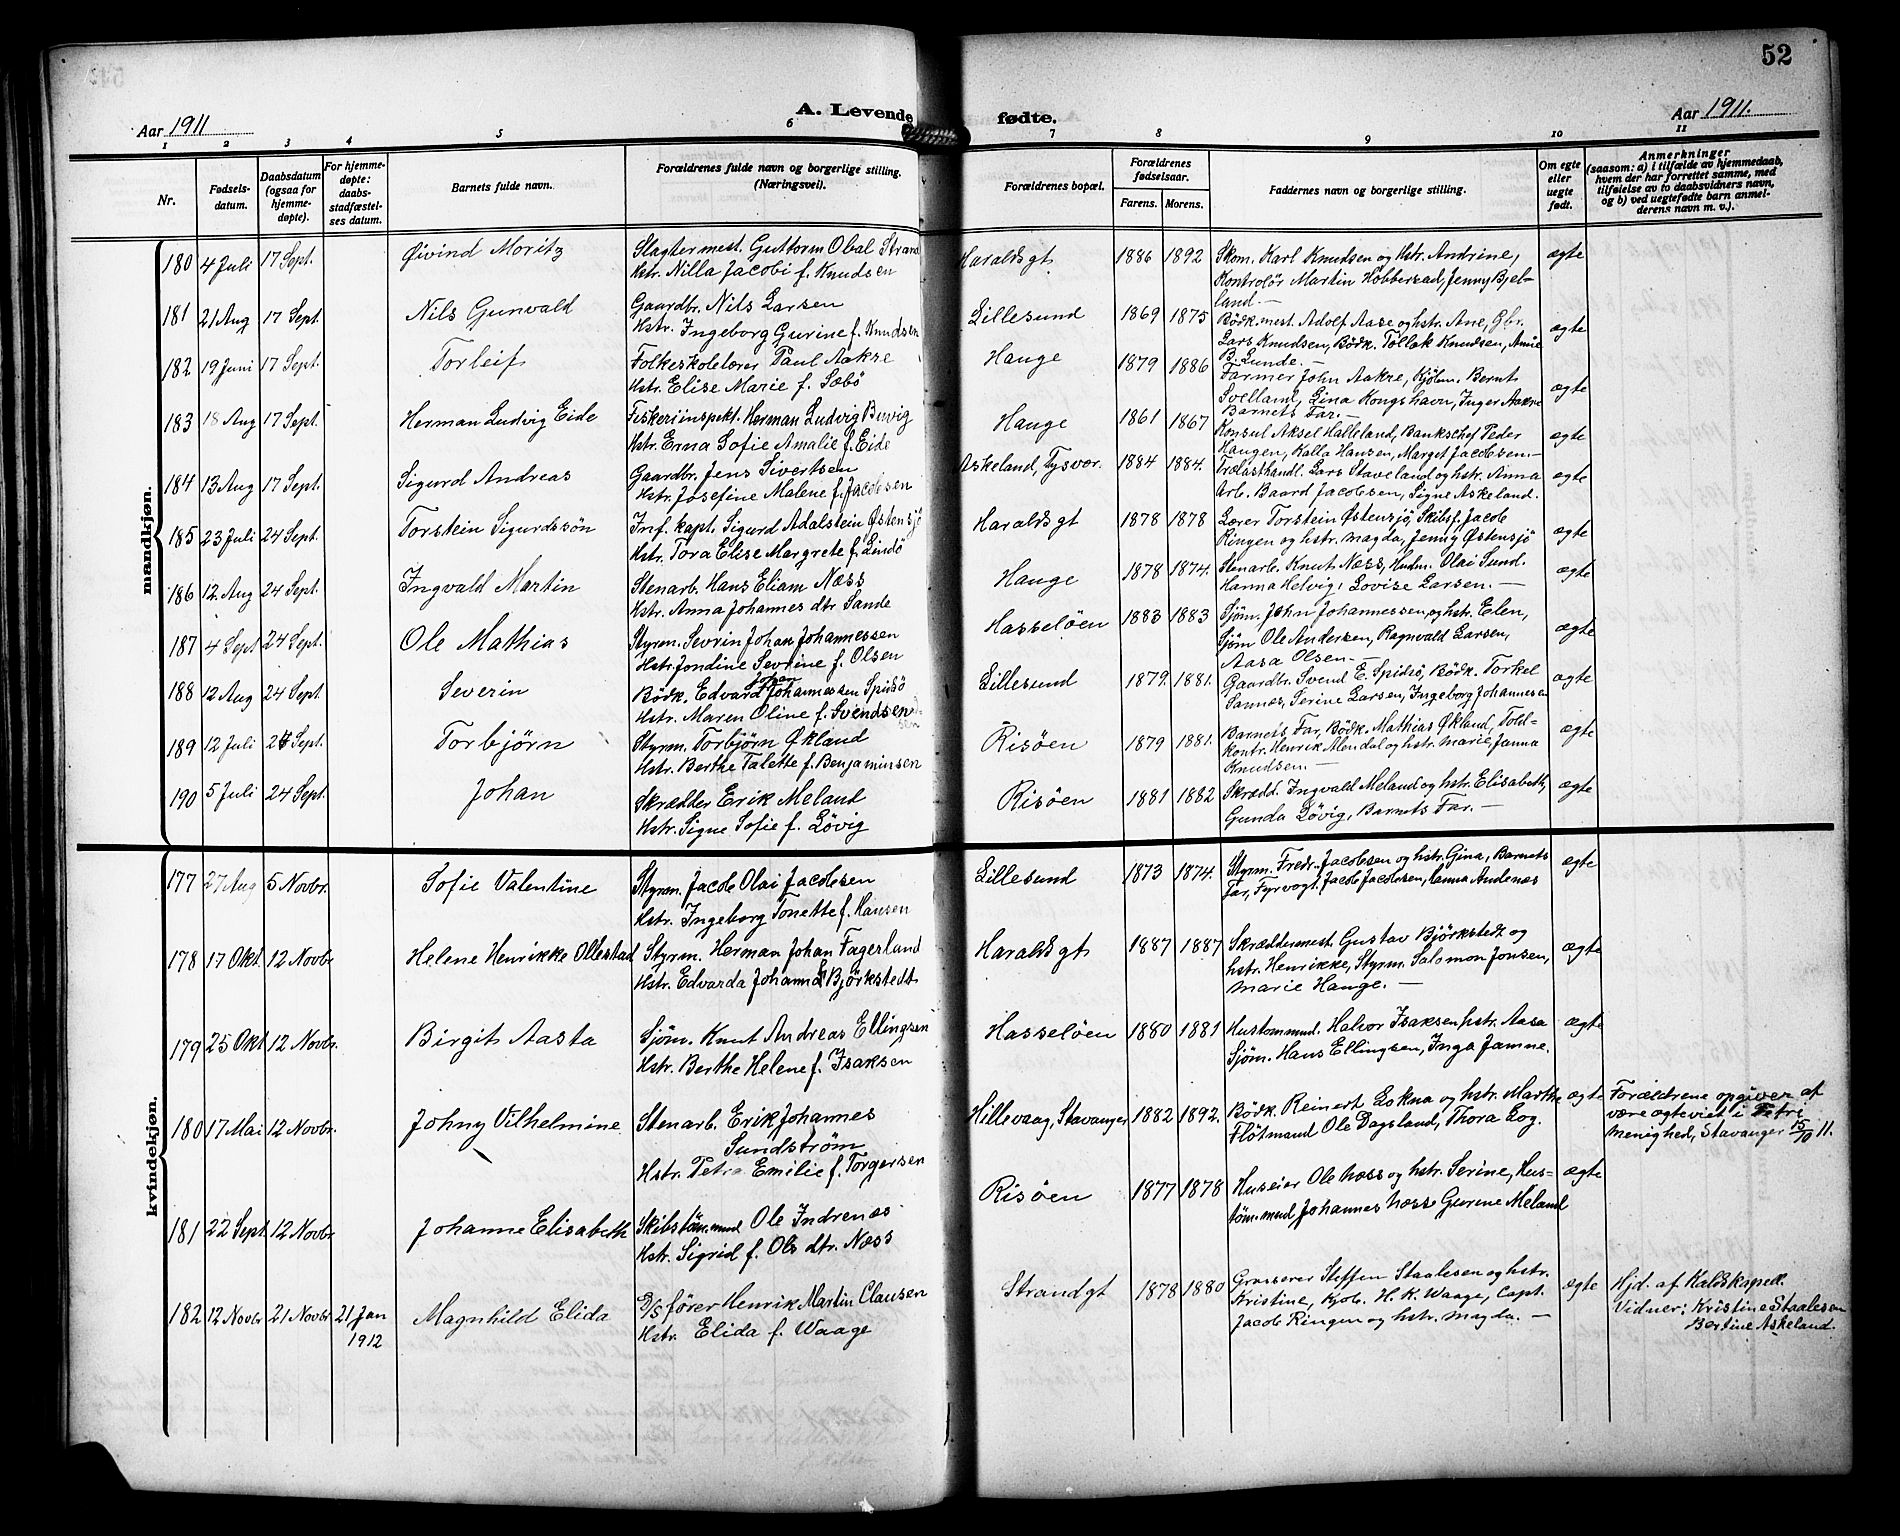 52
Aar 1911
A. Levende fødte.
Aar 1911.
1 2 3 4 5 6 7 8 9 10 11
Nr.
Fødsels-
datum.
Daabsdatum
(ogsaa for
hjemme-
døpte).
For hjemme-
døpte:
daabs-
stadfæstel-
ses datum.
Barnets fulde navn.
Forældrenes fulde navn og borgerlige stilling.
(Næringsvei).
Forældrenes bopæl.
Forældrenes
fødselsaar.
Farens. Morens.
Faddernes navn og borgerlige stilling.
Om egte
eller
uegte
født.
Anmerkninger
(saasom: a) i tilfælde av hjemmedaab,
hvem der har forrettet samme, med
tilføielse av to daabsvidners navn,
og b) ved uegtefødte barn anmel-
derens navn m. v.).
mandkjøn.
180 4 Juli 17 Sept. Øivind Moritz
Slagtermest. Guttorm Obal Strand
Hstr. Nilla Jacobi f. Knudsen
Haraldsgt 1886 1892
Skom. Karl Knudsen og hstr. Andrine,
Kontrolør Martin Hobberstad, Jenny Bjel-
land. —
ægte
181 21 Aug 17 Sept. Nils Gunvald
Gaardbr. Nils Larsen
Hstr. Ingeborg Gurine f. Knudsen
Lillesund 1869 1875
Bødk. mest. Adolf Aase og hstr. Ane, Gbr.
Lars Knudsen, Bødk. Tollak Knudsen, Anne
B. Lunde. —
ægte
182 19 Juni 17 Sept. Torleif
Folkeskolelærer Paul Aakre
Hstr. Elise Marie f. Sæbö
Hauge 1879 1886
Farmer John Aakre, Kjøbm. Bernt
Svelland, Gina Kongshavn, Inger Aakre
Barnets Far. —
ægte
183 18 Aug 17 Sept. Herman Ludvig Eide
Fiskeriinspekt. Herman Ludvig Buvig
Hstr. Erna Sofie Amalie f. Eide
Hauge 1861 1867
Konsul Aksel Halleland, Bankschef Peder
Haugen, Kalla Hansen, Margit Jacobsen. —
ægte
184 13 Aug 17 Sept. Sigurd Andreas
Gaardbr. Jens Sivertsen
Hstr. Josefine Malene f. Jacobsen
Askeland, Tysvær. 1884 1884.
Trælasthandl. Lars Staveland og hstr. Anna
Arb. Baard Jacobsen, Signe Askeland.
ægte
185 23 Juli 24 Sept. Torstein Sigurdssön
Inf. kapt. Sigurd Adalstein Østensjö
Hstr. Tora Elise Margrete f. Lindö
Haraldsgt 1878 1878
Lærer Torstein Østensjö, Skibsf. Jacob
Ringen og hstr. Magda, Jenny Østensjö
ægte
186 12 Aug 24 Sept. Ingvald Martin
Stenarb. Hans Eliam Næss
Hstr. Anna Johannes dtr Sande
Hauge 1878 1874.
Stenarb. Knut Næss, Husm. Olai Sund.
Hanna Helvig, Lovise Larsen. —
ægte
187 4 Sept 24 Sept. Ole Mathias
Styrm. Sevrin Johan Johannessen
Hstr. Jondine Sevrine f. Olsen
Hasselöen 1883 1883
Sjöm. John Johannessen, og hstr. Elen,
Sjöm Ole Andersen, Ragnvald Larsen,
Aasa Olsen. —
ægte
188 12 Aug 24 Sept. Severin
Bödk. Edvard Johan Johannessen Spidsö
Hstr. Maren Oline f. Svendsen
Lillesund 1879. 1881.
Gaardbr. Svend E. Spidsö, Bödk. Torkel
Sannæs, Serine Larsen, Ingeborg Johannesen
ægte
189 12 Juli 24 Sept. Torbjörn
Styrm. Torbjörn Økland
Hstr. Berthe Talette f. Benjaminsen
Risöen 1879 1881.
Barnets Far, Bödk. Mathias Økland, Told-
kontr. Henrik Alendal og hstr. Marie, Janna
Knudsen. —
ægte
190 5 Juli 24 Sept. Johan
Skrædder Erik Meland
Hstr. Signe Sofie f. Lövig
Risöen 1881 1882
Skrædd. Ingvald Meland og hstr. Elisabeth,
Gunda Lövig, Barnets Far. —
ægte
kvindekjøn.
177 27 Aug 5 Novbr. Sofie Valentine
Styrm. Jacob Olai Jacobsen
Hstr. Ingeborg Tonette f. Hansen
Lillesund 1873 1874.
Styrm. Fredr. Jacobsen og hstr. Gina, Barnets
Far, Fyrvogt. Jacob Jacobsen, Hanna Andenæs
ægte
178 17 Okt 12 Novbr Helene Henrikke Ollestad
Styrm. Herman Johan Fagerland
Hstr. Edvarda Johanna Björkstedt
Haraldsgt 1887 1887
Skræddermest. Gustav Björkstedt og
hstr. Henrikke, Styrm. Salomon Jonsen,
Marie Hauge. —
ægte
179 25 Okt 12 Novbr. Birgit Aasta
Sjöm. Knut Andreas Ellingsen
Hstr. Berthe Helene f. Isaksen
Hasselöen 1880 1881
Hustømmd. Halvor Isaksen, hstr. Aasa
Sjöm. Hans Ellingsen, Inga Jamne.
ægte
180 17 Mai 12 Novbr. Johny Vilhelmine
Stenarb. Erik Johannes
Sundström
Hstr. Petra Emilie f. Torgersen
Hillevaag, Stavanger 1882 1892.
Bödk. Reinert Lokna og hstr. Marthe
Flötmand Ole Dagsland, Thora Log.
ægte
Forældrene opgiver at
være ægteviet i Petri
menighed, Stavanger 15/10 11.
181 22 Sept 12 Novbr. Johanne Elisabeth
Skibstöm.mnd Ole Indrenæs
Hstr. Sigrid f. Ols dtr. Næss
Risöen 1877 1878
Huseier Ole Næss og hstr. Serine, Hus-
töm.mnd Johannes Næss Gurine Meland
ægte
182 12 Novbr 21 Novbr 21 Jan
1912
Magnhild Elida
D/S förer Henrik Martin Clausen
Hstr. Elida f. Waage
Strandgt 1878 1880
Grosserer Steffen Staalesen og hstr.
Kristine, Kjöb. H. K. Waage, Capt.
Jacob Ringen og hstr. Magda. —
ægte
Hjd. af Kaldskaped.
Vidner: Kristine Staalesen
Bertine Askeland.